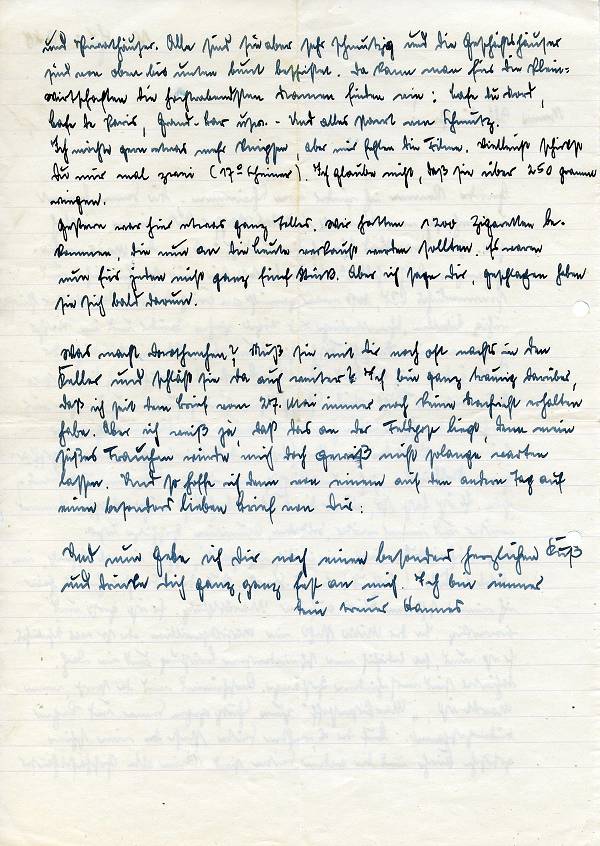 und Privathäuser. Alle sind sie aber sehr schmutzig und die Geschäftshäuser
sind von oben bis unten bunt beschriftet. Da kann man für die Klein-
wirtschaften die hochtrabendsten Namen finden wie: Cafe du Nord,
Cafe de Paris, Grand-Bar usw. - Und alles starrt von Schmutz.
Ich möchte gern etwas mehr knipsen, aber mir fehlen die Filme. Vielleicht schickst
Du mir mal zwei (17° Scheiner). Ich glaube nicht, daß sie über 250 gramm
wiegen.
Gestern war hier etwas ganz tolles. Wir hatten 1200 Zigaretten be-
kommen, die nun an die Leute verkauft werden sollten. Es waren
nun für jeden nicht ganz fünf Stück. Aber ich sage dir, geschlagen haben
sie sich bald darum.
Was macht Dorothechen? Muß sie mit Dir noch oft nachts in den
Keller und schläft sie da auch weiter? Ich bin ganz traurig darüber,
daß ich seit dem Brief vom 27. Mai immer noch keine Nachricht erhalten
habe. Aber ich weiß ja, daß das an der Feldpost liegt, denn mein
süßes Frauchen würde mich doch gewiß nicht solange warten
lassen. Und so hoffe ich denn von einem auf den andern Tag auf
einen besonders lieben Brief von Dir.
Und nun gebe ich Dir noch einen besonders herzlichen Kuß
und drücke Dich ganz ganz fest an mich. Ich bin immer
Dein treuer Hannes